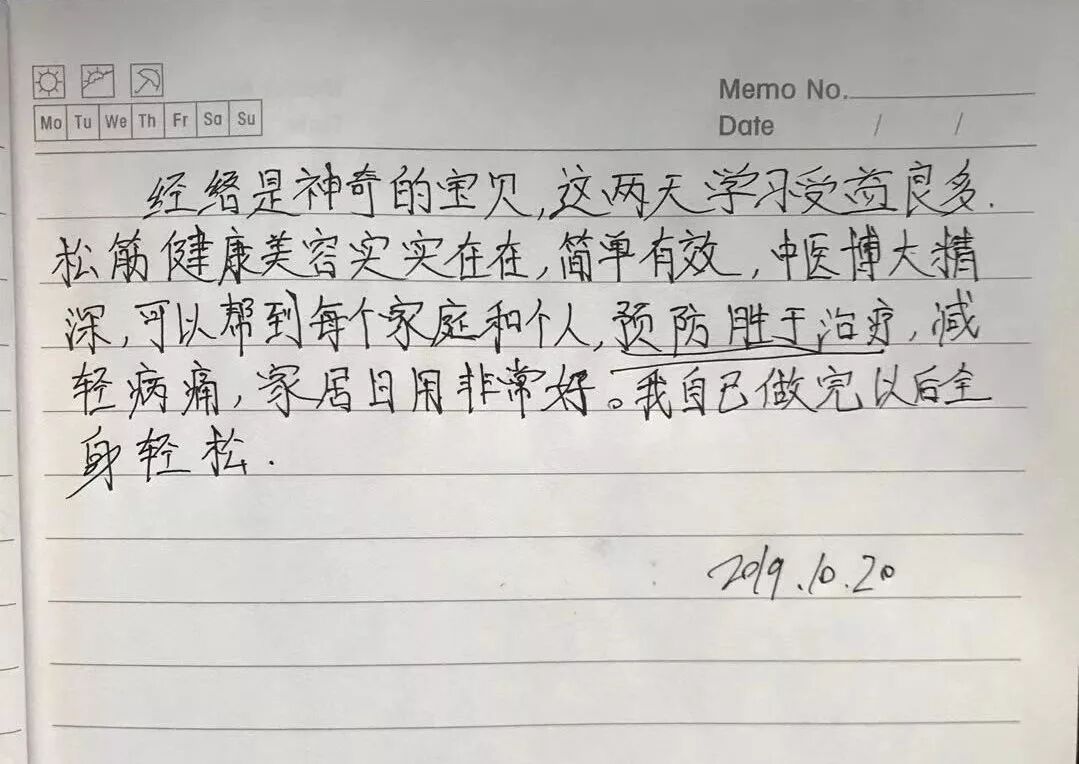 Memo No.
Mo Tu We Th Fr Sa Su
Date / /
经络是神奇的宝贝,这两天学习受益良多.
松筋健康美容实实在在,简单有效,中医博大精
深,可以帮到每个家庭和个人,预防胜于治疗,减
轻病痛,家居日用非常好。我自己做完以后全
身轻松.
2019.10.20